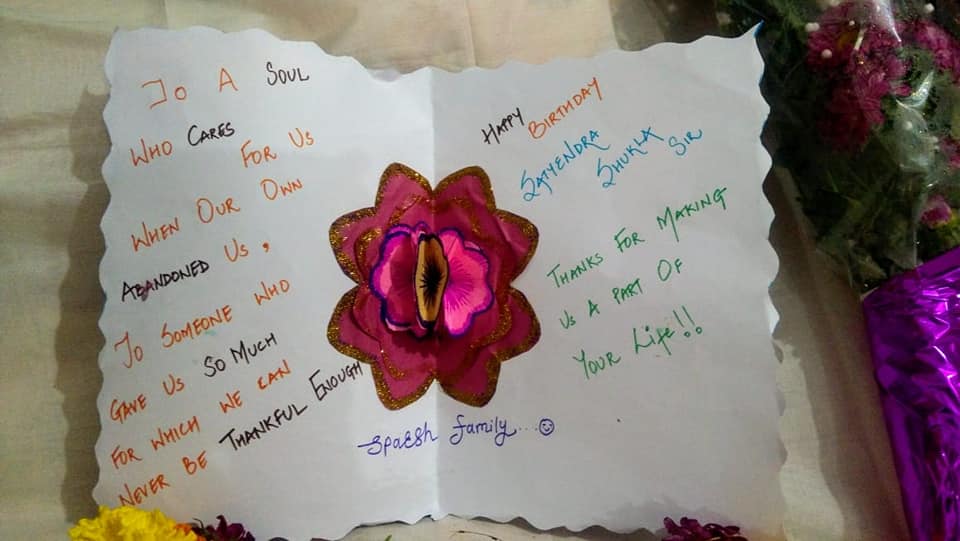 To A SOUL
WHO CARES
FOR US
WHEN OUR OWN
ABANDONED US,
TO SOMEONE WHO
GAVE US SO MUCH
FOR WHICH WE CAN
NEVER BE THANKFUL ENOUGH
HAPPY BIRTHDAY
SATYENDRA
SHUKLA SIR
THANKS FOR MAKING
US A PART OF
YOUR Life!!
SpaEsh family...☺